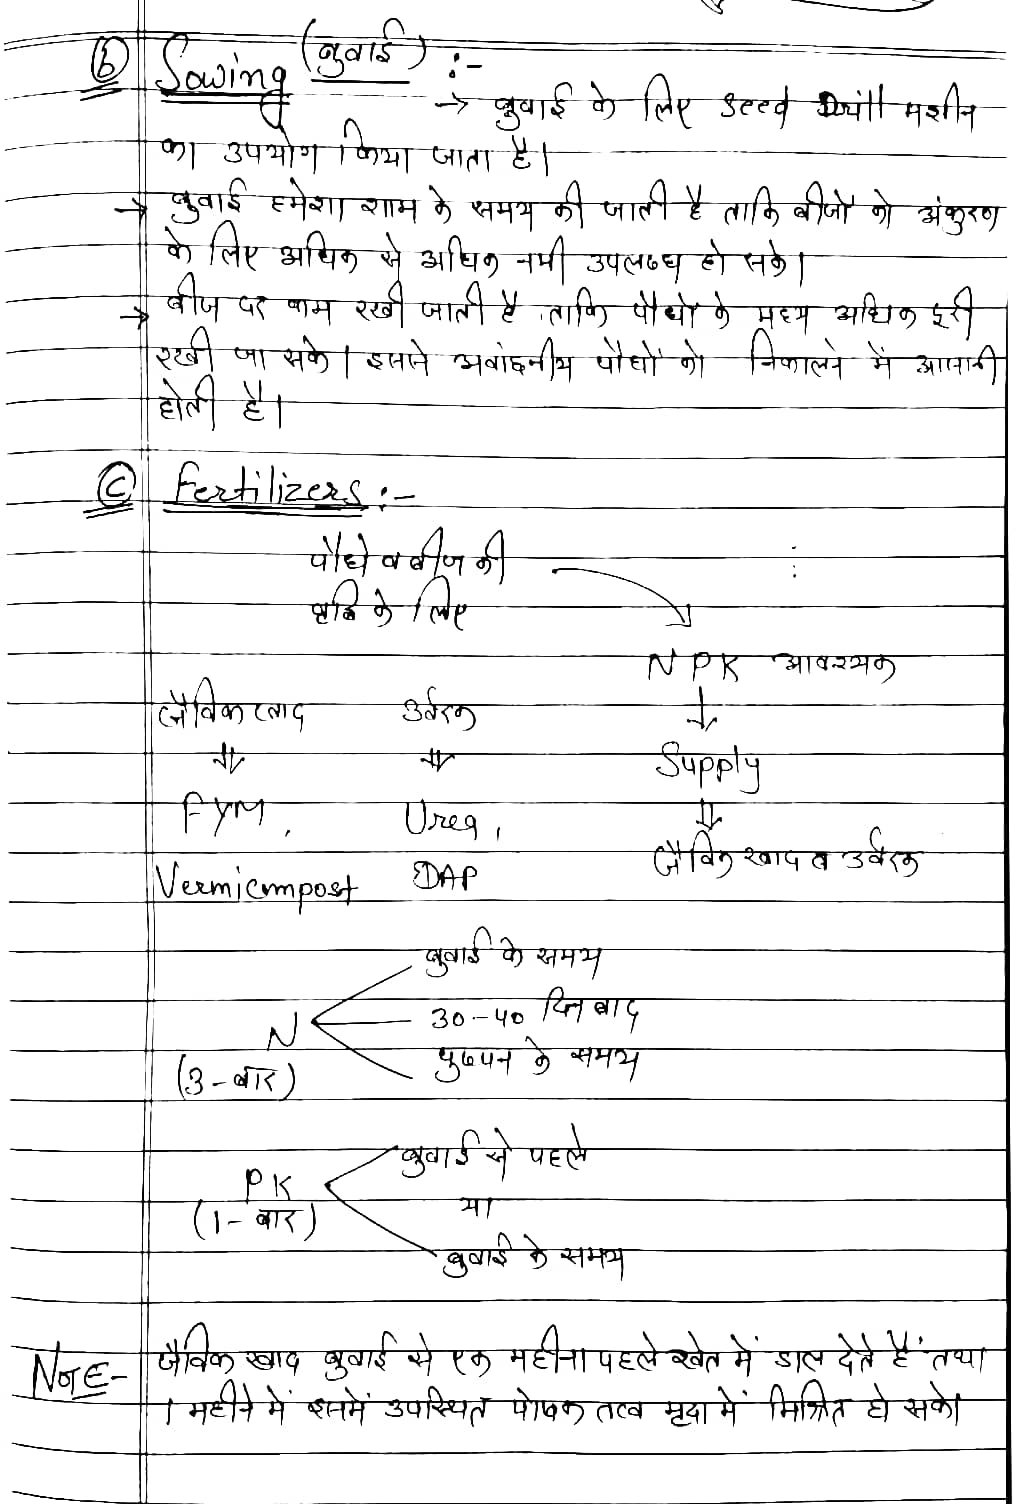 (b) Sowing (बुवाई) :-
→ बुवाई के लिए Seed Drill मशीन
का उपयोग किया जाता है।
→ बुवाई हमेशा शाम के समय की जाती है ताकि बीजों को अंकुरण
के लिए अधिक से अधिक नमी उपलब्ध हो सके।
→ बीज दर कम रखी जाती है ताकि पौधों के मध्य अधिक दूरी
रखी जा सके। इससे अवांछनीय पौधों को निकालने में आसानी
होती है।
(c) Fertilizers :-
पौधे व बीज की
वृद्धि के लिए
NPK आवश्यक
जैविक खाद उर्वरक
↓
⇓ ⇓ Supply
FYM, Urea, ⇓
जैविक खाद व उर्वरक
Vermicompost DAP
बुवाई के समय
30-40 दिन बाद
N
पुष्पन के समय
(3-बार)
बुवाई से पहले
PK
या
(1-बार)
बुवाई के समय
NOTE- जैविक खाद बुवाई से एक महीना पहले खेत में डाल देते हैं तथा
1 महीने में इसमें उपस्थित पोषक तत्व मृदा में मिश्रित हो सके।